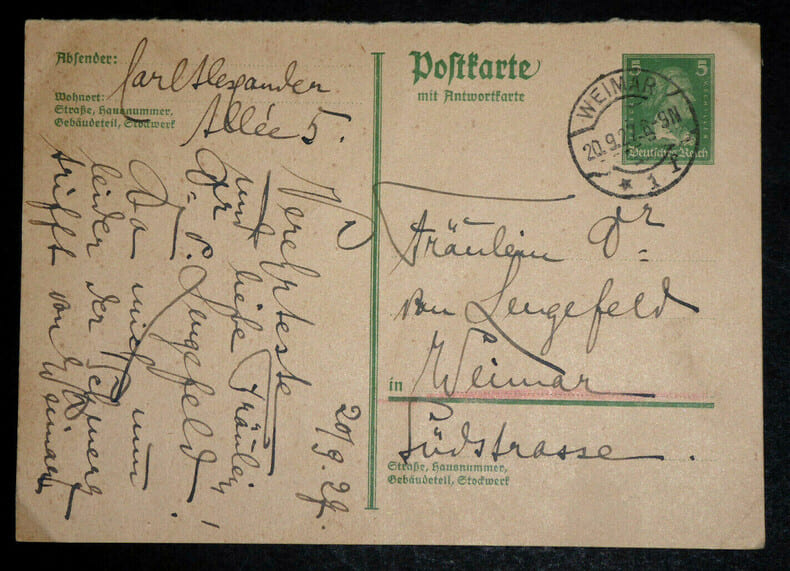 Absender: Carl Alexander
Wohnort:
Straße, Hausnummer,
Gebäudeteil, Stockwerk
Allée 5.
Postkarte
mit Antwortkarte
5 5
Deutsches Reich
WEIMAR
20.9.27. 8-9N
* 1 1
Fräulein Dr
von Lengefeld
in Weimar
Südstrasse.
Straße, Hausnummer,
Gebäudeteil, Stockwerk
20/9.27.
Verehrteste
und liebe Fräulein
Dr. v. Lengefeld!
Da mich nun
leider der Schmerz
trifft von Weimar